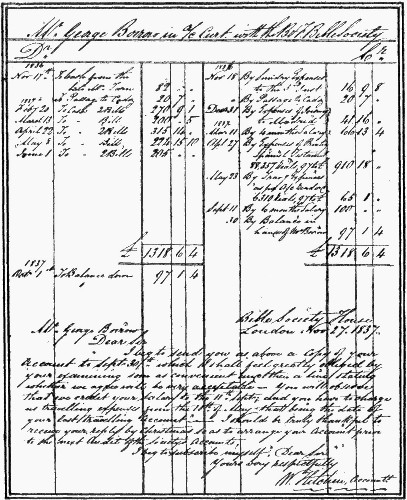 Mr. George Borrow in A/c Curt with the B & F Bible Society
Dr. Cr.
1836
Nov 17th To Cash from the
late Mr. Tarn 82 " "
" Passage to Cadiz 20 7 "
Feby 20 To Cash 2 Bills 270 9 1
March 13 To " Bill 200 " 5
April 22 To " 2 Bills 315 14 "
May 8 To " Bill 224 15 10
June 1 To " 2 Bills 205 " "
£ 1318 6 4
1837
Oct 1st To Balance down 97 1 4
1836
Nov 18 By Sundry Expenses
to the 3d Inst 16 9 8
" By Passage to Cadiz 20 7 "
Decr 31 By Expenses
to Madrid 41 16 "
1837
Mar 11 By 4 months Salary 66 13 4
Apl 27 By Expenses of Printg
Spanish Testamt
910 18 "
May 28 By Travg Expenses
as per A/c
65 1 "
Sept 11 By 6 months Salary 100 " "
30 By Balance in
hands of Mr Borrow
97 1 4
£ 1318 6 4
Bible Society House
London Nov 27. 1837.
Mr. George Borrow
Dear Sir
I beg to send you as above a Copy of your
Account to Septr 30th which I shall feel greatly obliged by
your examining soon as convenient and by a line stating
whether we agree will be very acceptable — You will observe
that we credit your Salary to the 11th Septr, and you have to charge
us travelling expenses from the 18th of May — that being the date of
your last travelling Account — I should be truly thankful to
receive your reply by Christmas so as to arrange your Account prior
to the next Audit of the Society's Accounts,
I beg to subscribe myself, Dear Sir
Yours very respectfully
W. Hitchin, Accountt